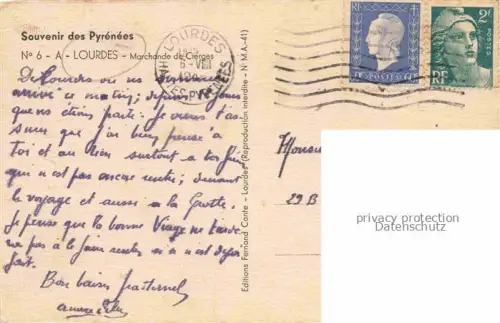 Souvenir des Pyrénées
Nº 6 - A - LOURDES - Marchande de Cierges
LOURDES
6-VII
PYRÉNÉES
RF
POSTES
2F
RF
POSTES
De Lourdes ou ns sommes
arrivé ce matin; depuis
que ns étions parti. Je viens t'as-
surer que j'ai bien pensé à
toi et au tien surtout a ton
qui n'est pas encore rentré; durant
le voyage et aussi a la Grotte.
Je pense que la bonne Vierge ne tarde-
ra pas à le faire rentrer si ce n'est déjà
fait.
Bon baiser fraternel
Editions Fernand Conte - Lourdes (Reproduction interdite - N.M.A.-41)
Monsieur
29 B
privacy protection
Datenschutz